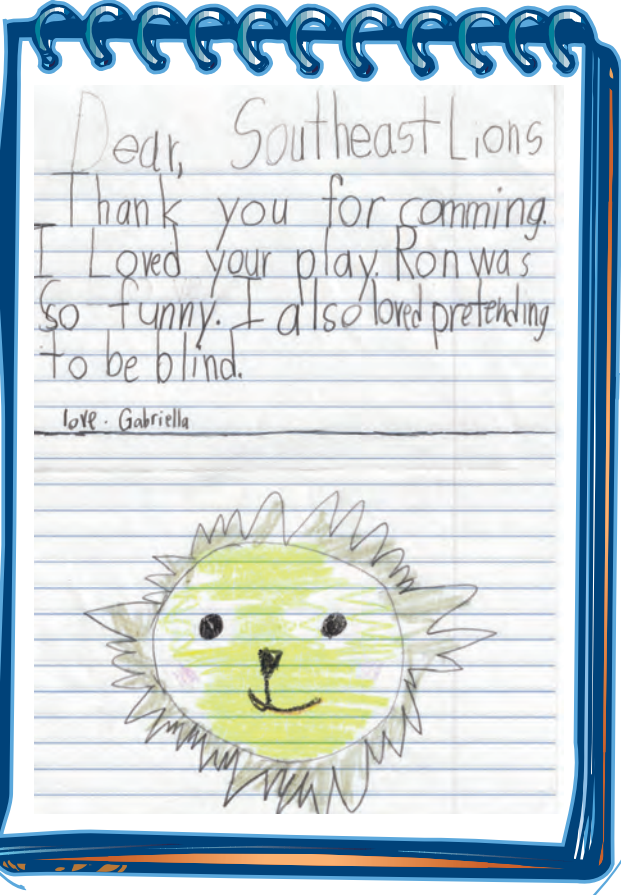 Dear, Southeast Lions
Thank you for comming.
I Loved your play. Ron was
so funny. I also loved pretending
to be blind.
love. Gabriella